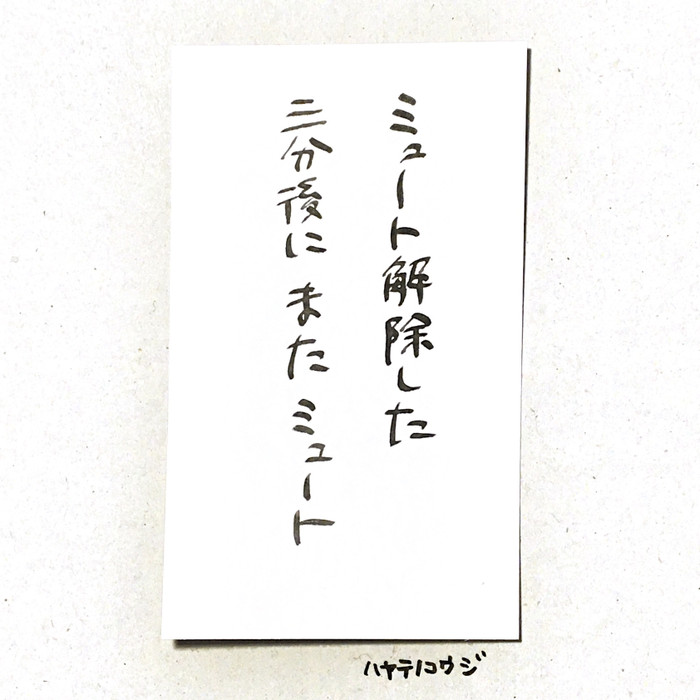 ミュート解除した
三分後に また ミュート
ハヤテノコウジ